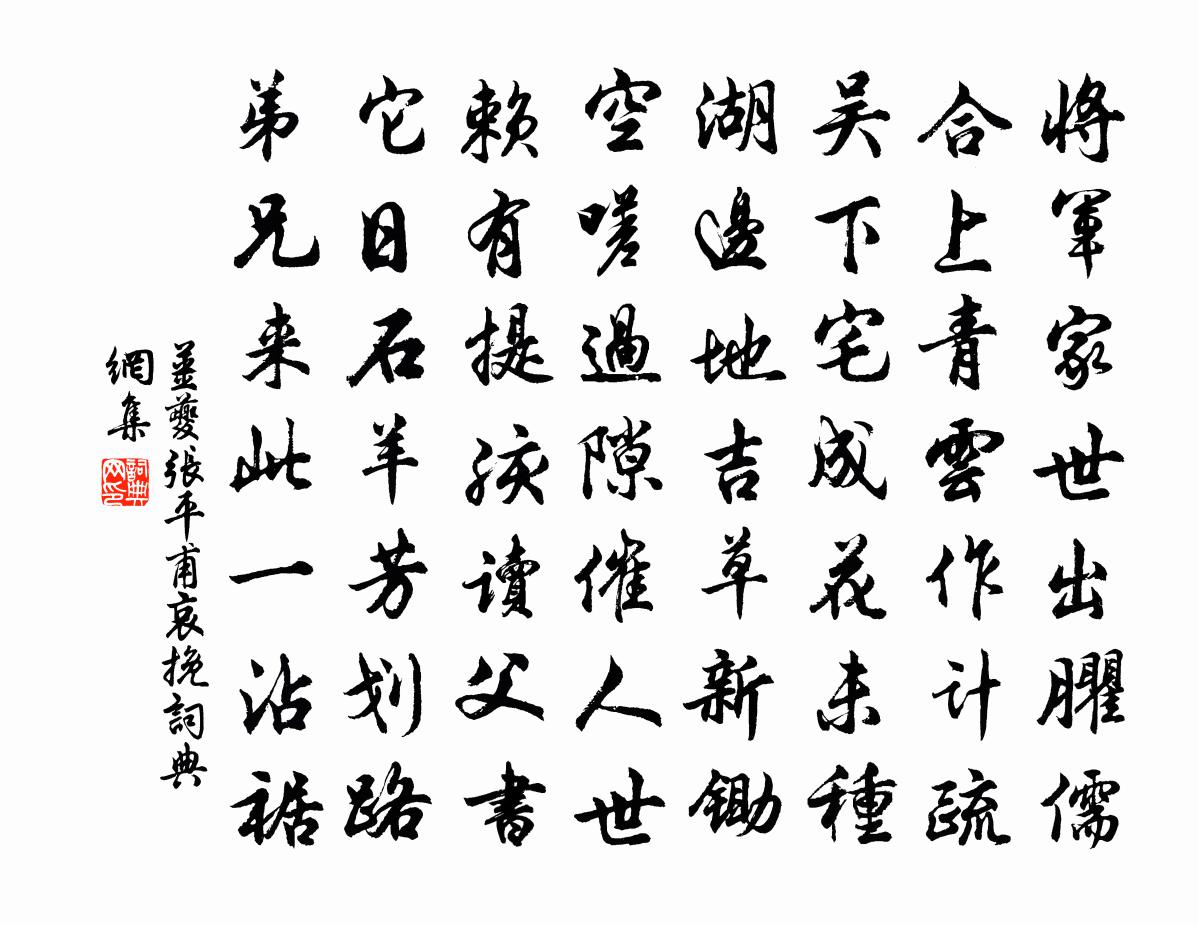 将軍家世出臞儒
合上青雲作计疏
吴下宅成花未種
湖邊地吉草新鋤
空嗟過隙催人世
赖有提孩讀父書
它日石羊芳划路
弟兄来此一沾裾
姜夔张平甫哀挽詞典
網集
詞典网印